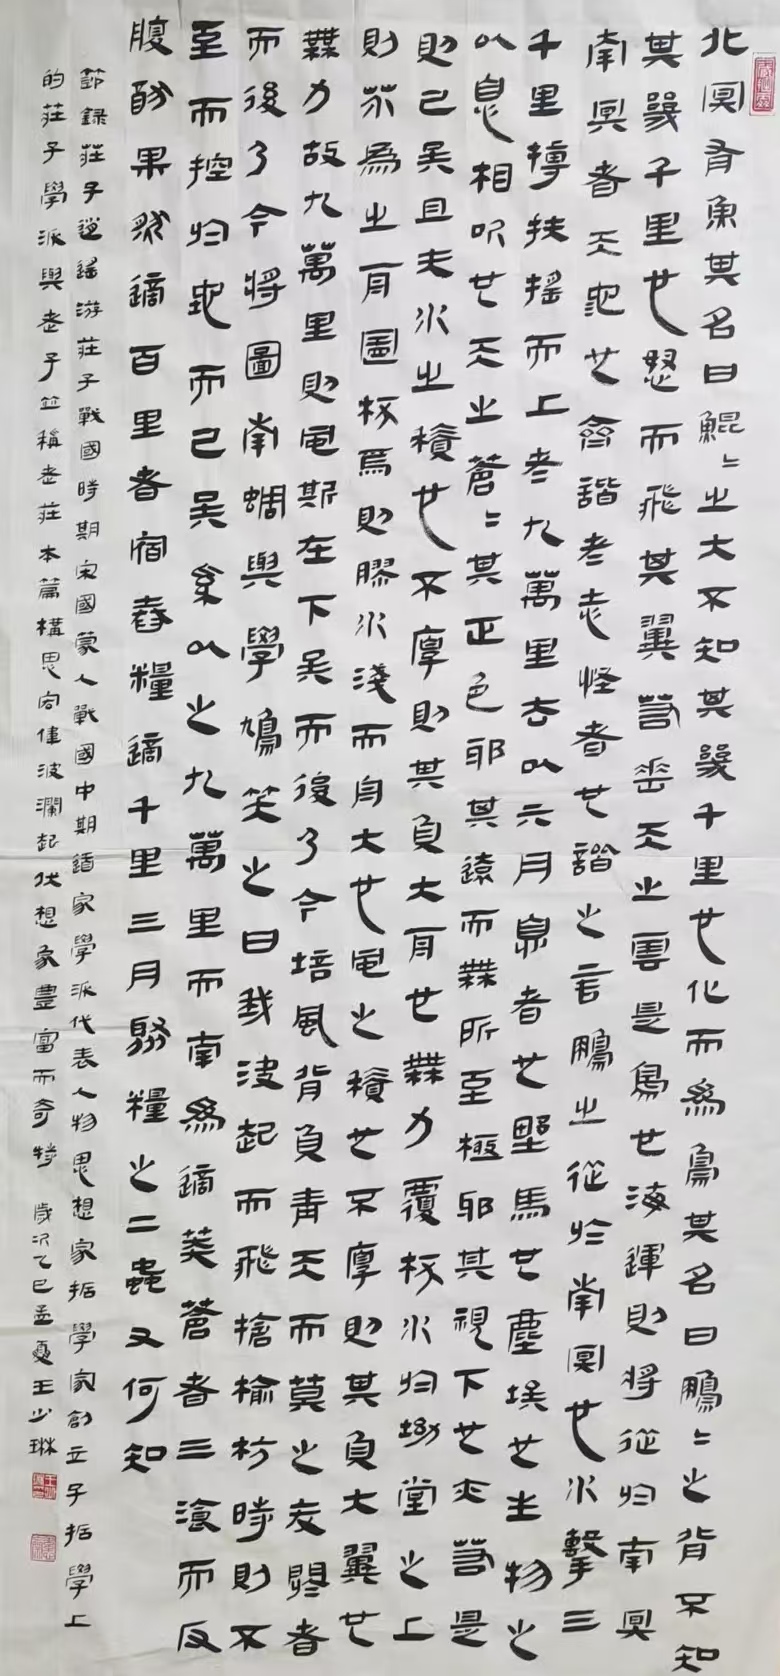 北冥有魚其名曰鯤〻之大不知其幾千里也化而為鳥其名曰鵬〻之背不知
其幾千里也怒而飛其翼若垂天之雲是鳥也海運則將徙於南冥
南冥者天池也齊諧者志怪者也諧之言曰鵬之徙於南冥也水擊三
千里摶扶搖而上者九萬里去以六月息者也野馬也塵埃也生物之
以息相吹也天之蒼〻其正色耶其遠而無所至極耶其視下也亦若是
則已矣且夫水之積也不厚則其負大舟也無力覆杯水於坳堂之上
則芥為之舟置杯焉則膠水淺而舟大也風之積也不厚則其負大翼也
無力故九萬里則風斯在下矣而後乃今培風背負青天而莫之夭閼者
而後乃今將圖南蜩與學鳩笑之曰我決起而飛搶榆枋時則不
至而控於地而已矣奚以之九萬里而南為適莽蒼者三湌而反
腹猶果然適百里者宿舂糧適千里三月聚糧之二蟲又何知
節錄莊子逍遙游莊子戰國時期宋國蒙人戰國中期道家學派代表人物思想家哲學家創立了哲學上
的莊子學派與老子並稱老莊本篇構思宏偉波瀾起伏想象豐富而奇特 歲次乙巳孟夏王少琳